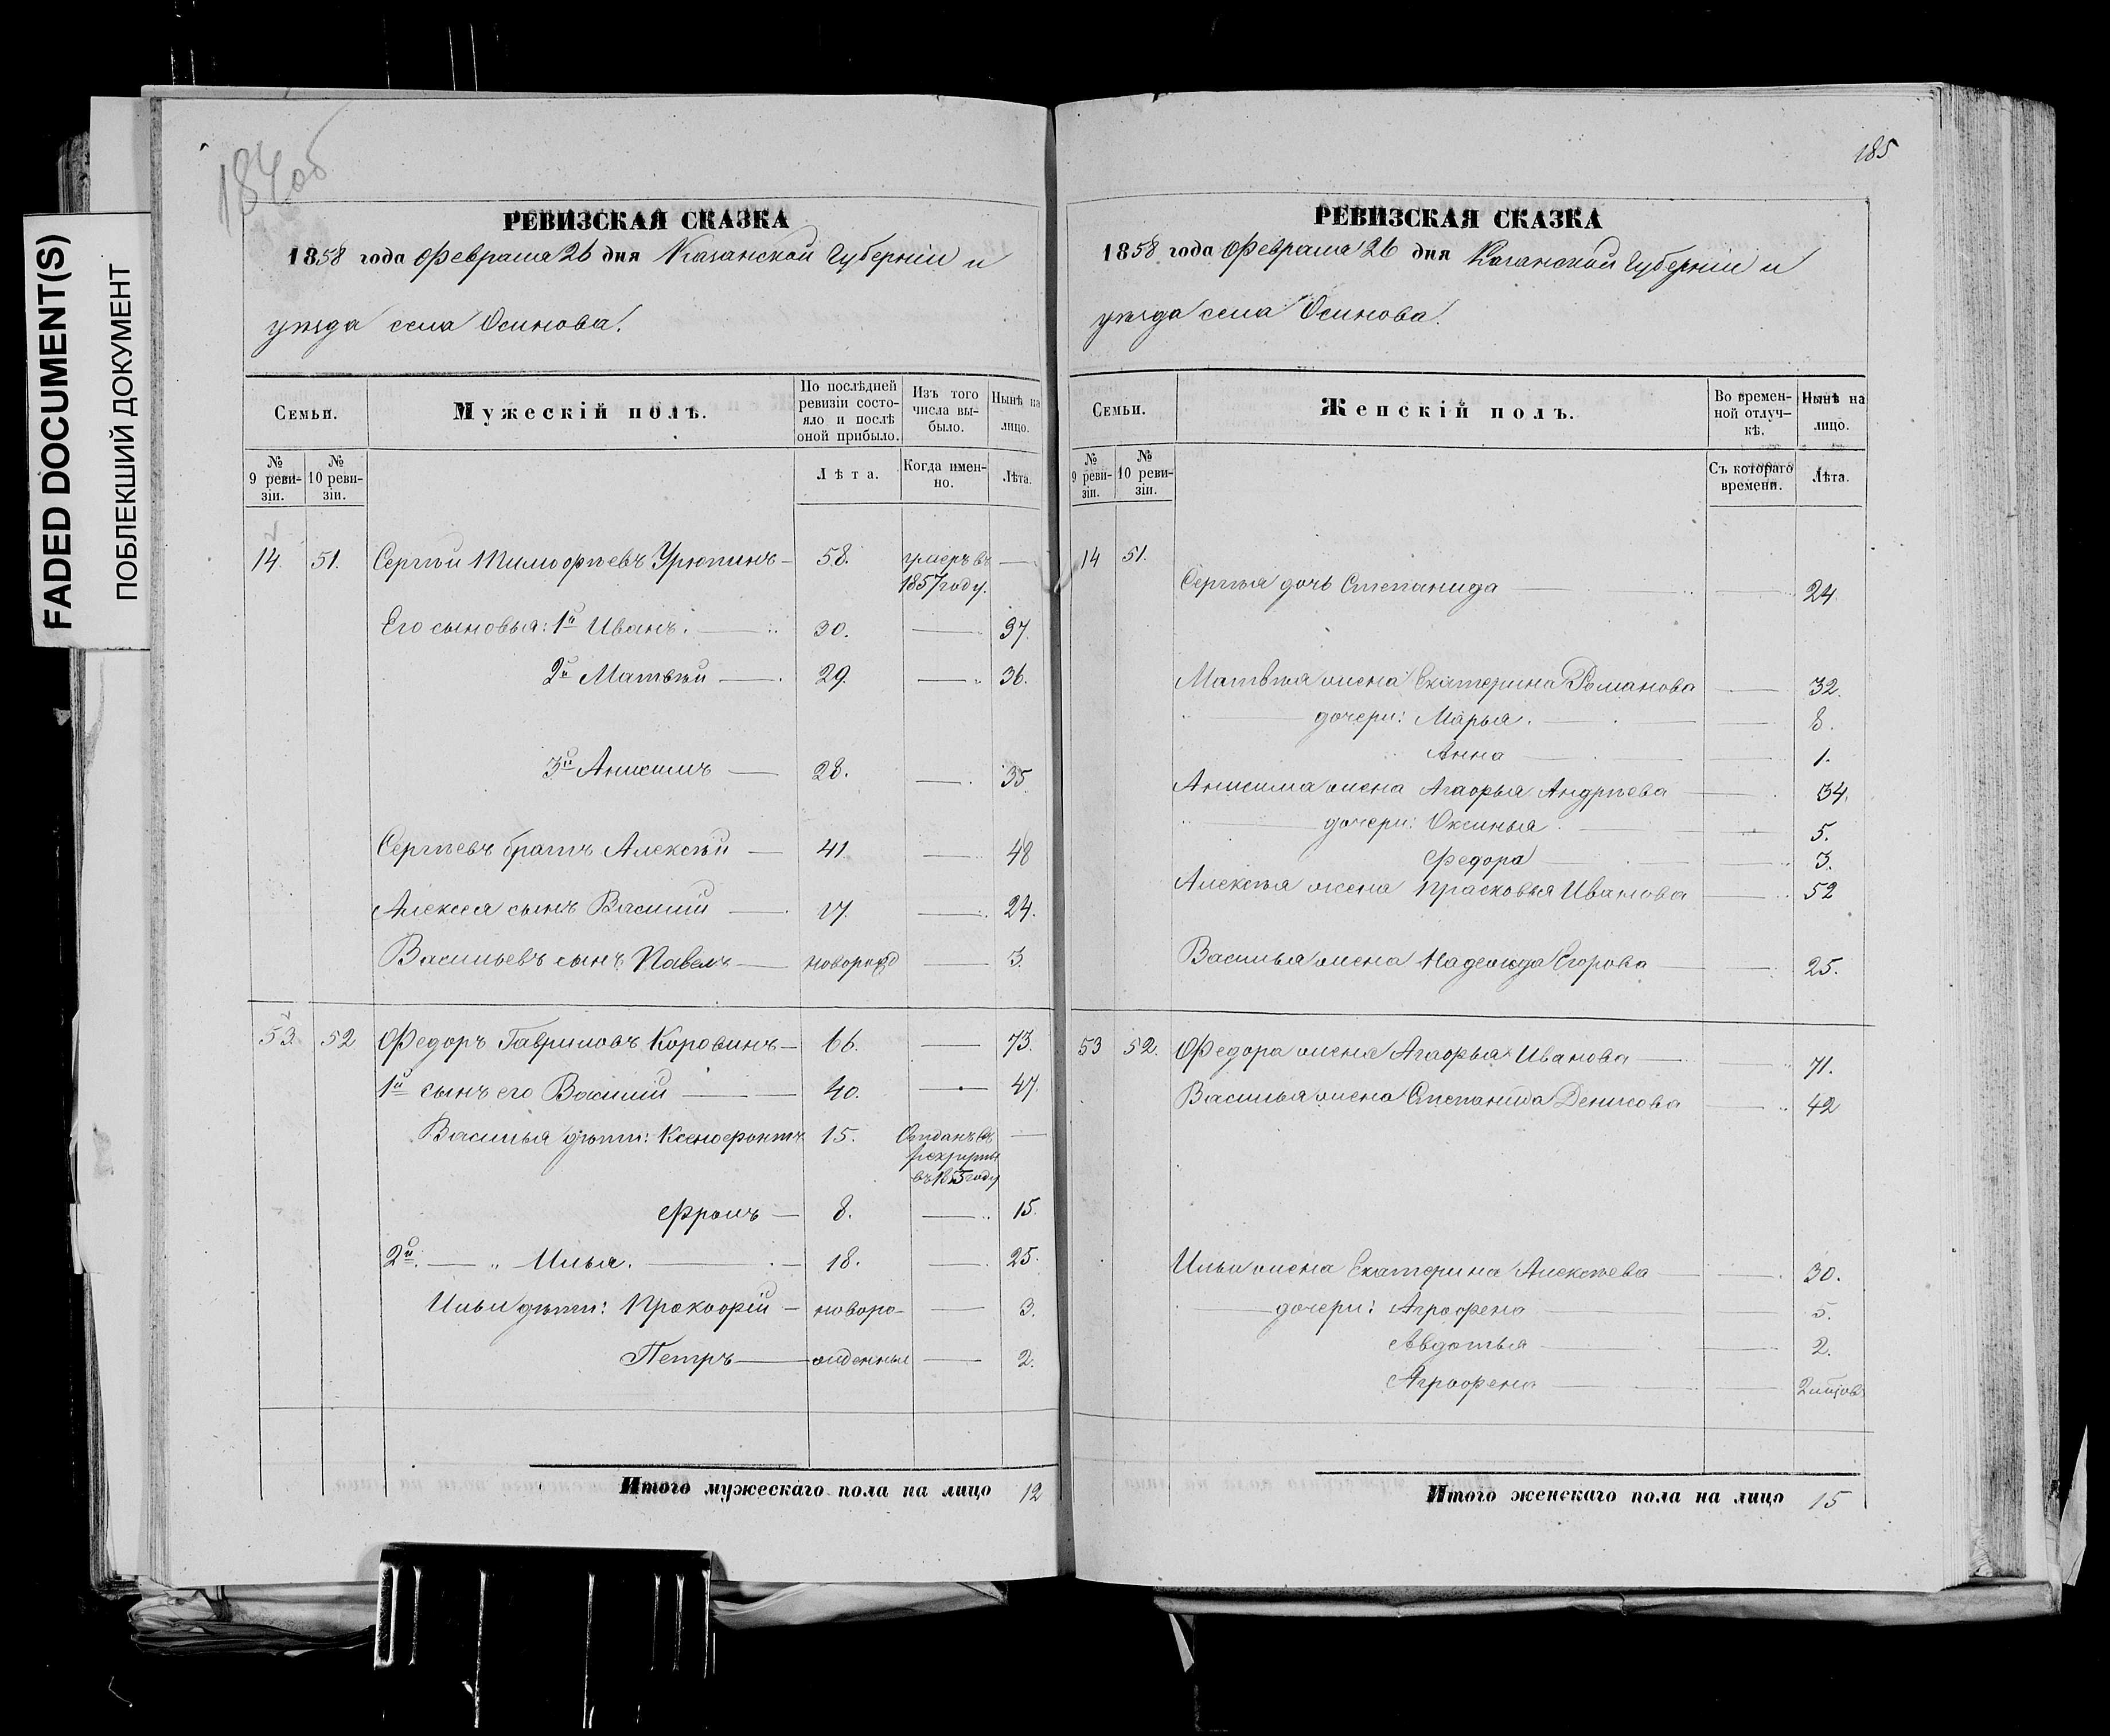 FADED DOCUMENT(S)
ПОБЛЕКШИЙ ДОКУМЕНТ
184об
РЕВИЗСКАЯ СКАЗКА
1858 года Февраля 26 дня Казанской Губернiи и
уѣзда села Осинова.
Семьи.
Мужескiй полъ.
По послѣдней ревизiи состояло и послѣ оной прибыло.
Изъ того числа выбыло.
Нынѣ на лицо.
№ 9 ревизiи.
№ 10 ревизiи.
Лѣта.
Когда именно.
Лѣта.
14. 51. Сергѣй Тимофѣевъ Урюпинъ — 58. умеръ въ 1857 году. —
Его сыновья: 1й Иванъ. — 30. — 37.
2й Матвѣй — 29. — 36.
3й Анисимъ — 28. — 35
Сергѣевъ братъ Алексѣй — 41 — 48
Алексея сынъ Василий — 17. — 24.
Васильевъ сынъ Павелъ — новорожд — 3.
53. 52 Федоръ Гавриловъ Коровинъ — 66. — 73.
1й сынъ его Василiй — 40. — 47.
Василья дѣти: Ксенофонтъ 15. Отданъ въ рекруты въ 1855 году —
Фролъ — 8. — 15.
2й — „ Илья. — 18. — 25.
Ильи дѣти: Прокофiй — новоро- — 3.
Петръ — жденные — 2.
Итого мужескаго пола на лицо 12
185
РЕВИЗСКАЯ СКАЗКА
1858 года Февраля 26 дня Казанской Губернiи и
уѣзда села Осинова.
Семьи.
Женскiй полъ.
Во временной отлучкѣ.
Нынѣ на лицо.
№ 9 ревизiи.
№ 10 ревизiи.
Съ котораго времени.
Лѣта.
14 51.
Сергѣя дочь Степанида — — 24
Матвѣя жена Екатерина Романова — 32.
дочери: Марья. — — 8.
Анна — — 1.
Анисима жена Агафья Андрѣева — 34.
дочери: Оксинья. — — 5.
Федора — — 3.
Алексѣя жена Прасковья Иванова — 52
Василья жена Надежда Егорова — 25.
53 52. Федора жена Агафья Иванова — 71.
Василья жена Степанида Денисова — 42
Ильи жена Екатерина Алексѣева — 30.
дочери: Аграфена — — 5.
Авдотья — — 2.
Аграфена — —
Итого женскаго пола на лицо 15